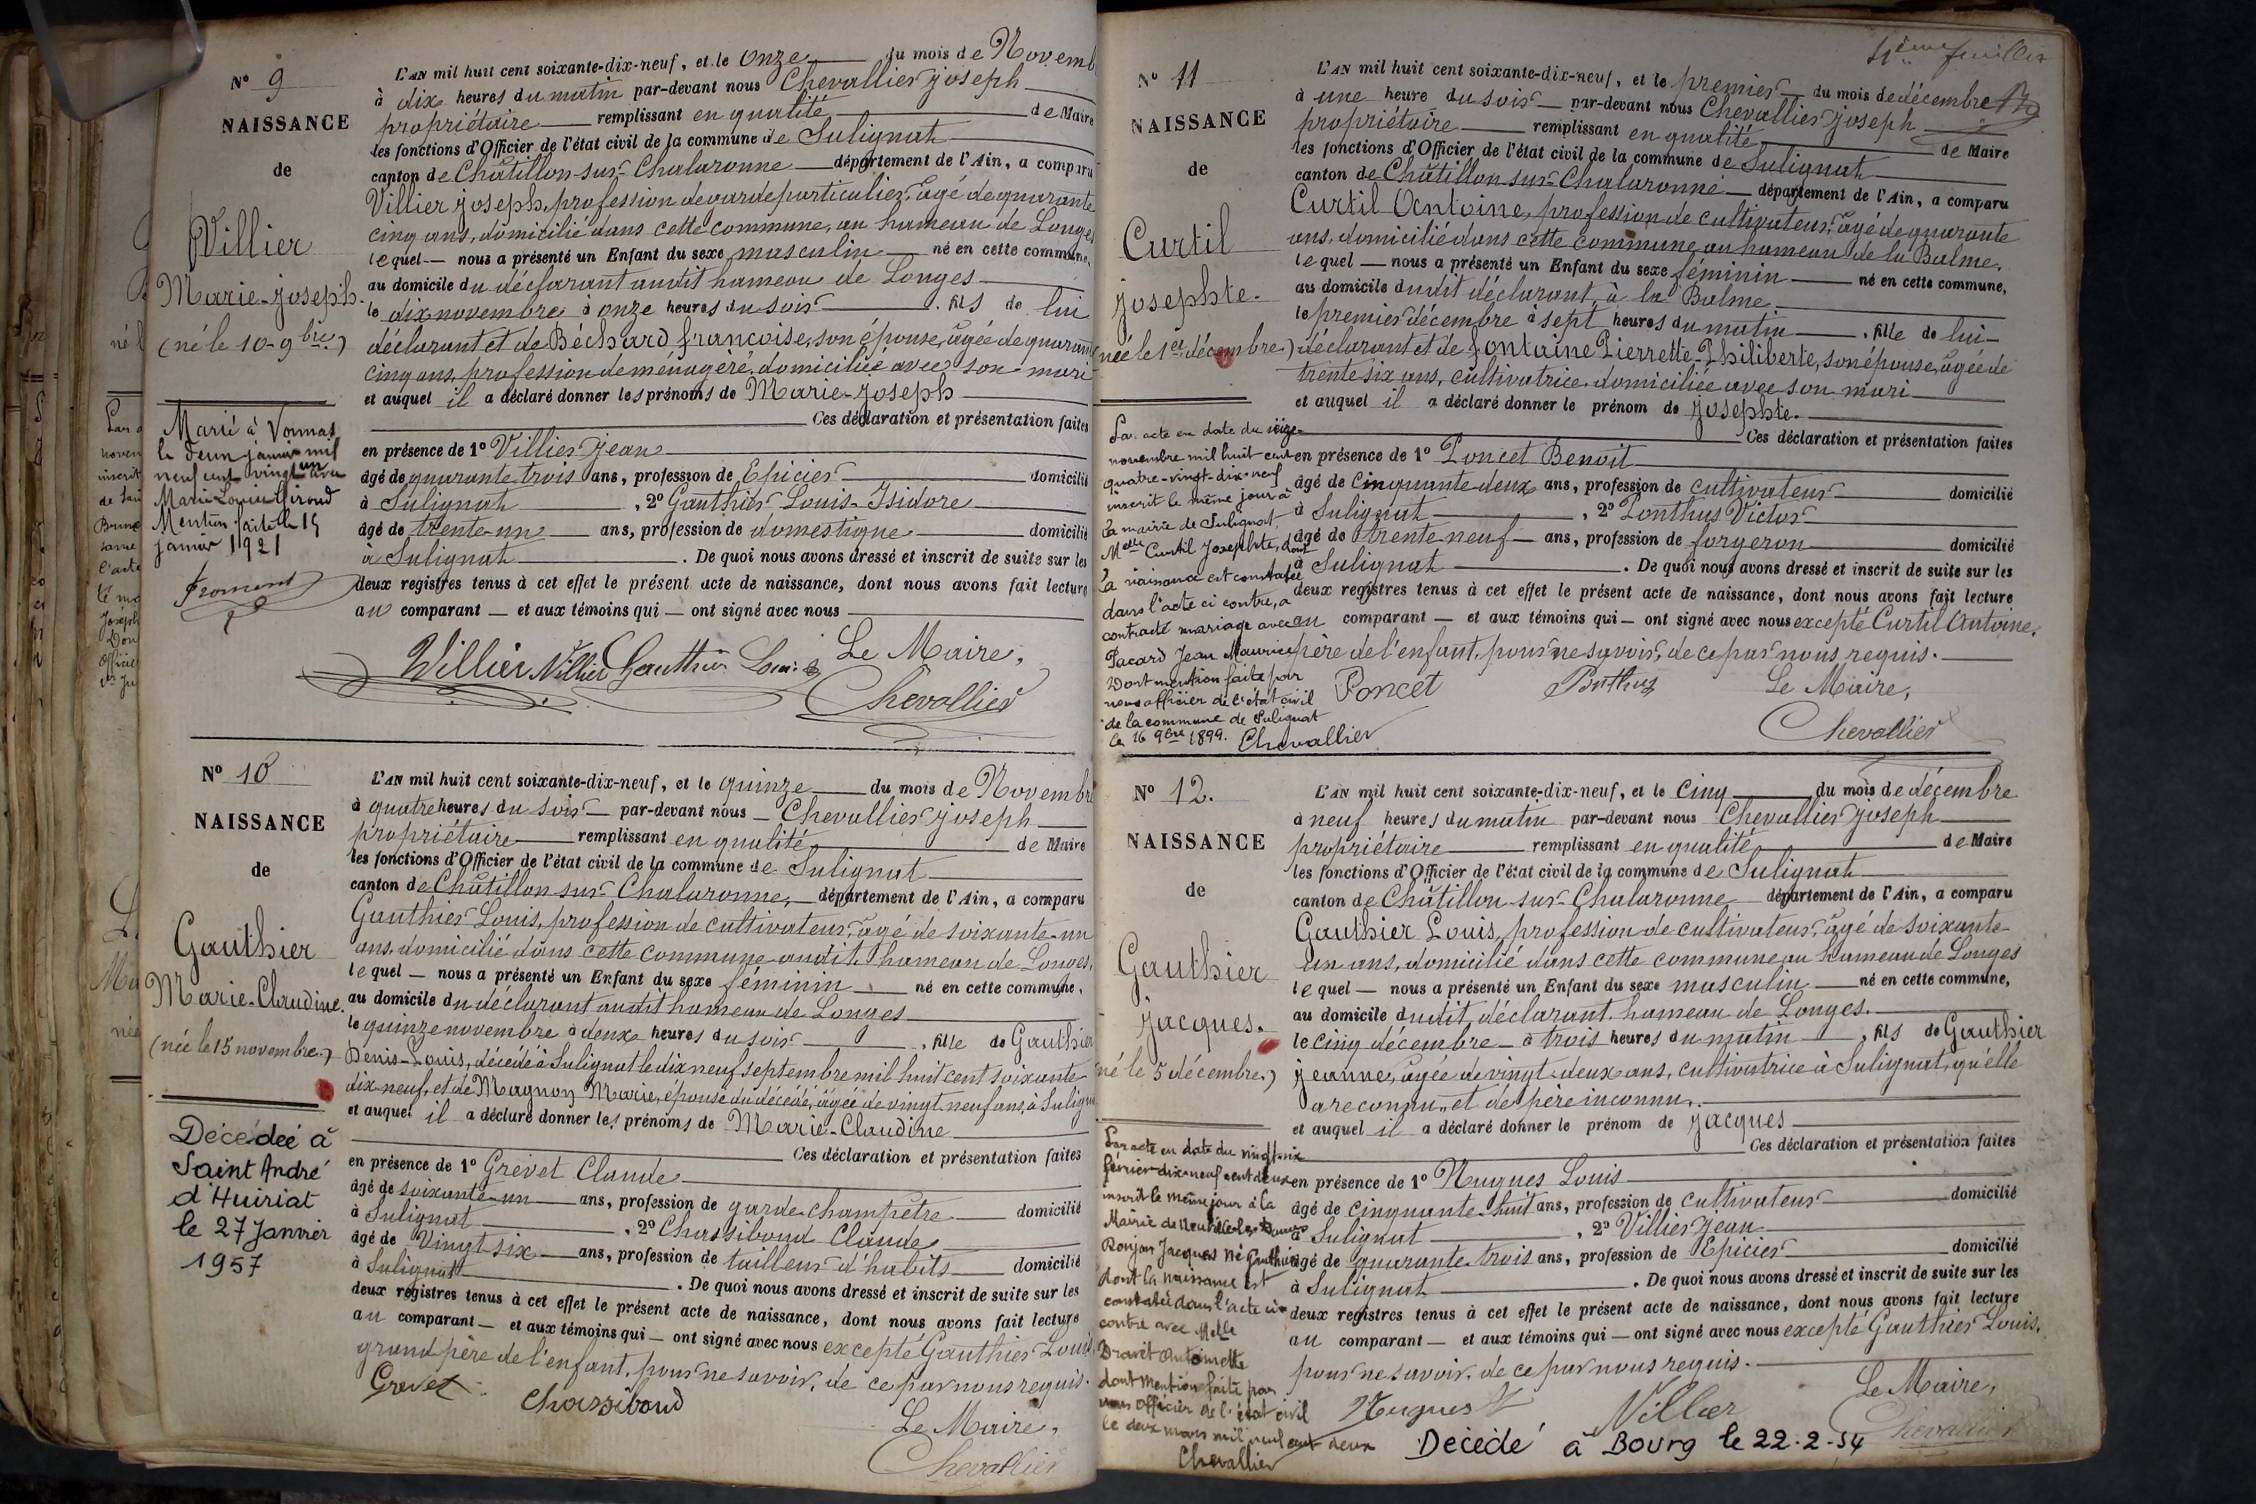 Nº 9
NAISSANCE
de
Villier
Marie-Joseph.
(né le 10 9bre)
Marié à Vonnas
le deux janvier mil
neuf cent vingt un avec
Marie Louise Giroud
Mention faite le 15
janvier 1921
Froment
L'AN mil huit cent soixante-dix-neuf, et le onze du mois de Novemb
à dix heures du matin par-devant nous Chevallier Joseph
propriétaire remplissant en qualité de Maire
les fonctions d'Officier de l'état civil de la commune de Sulignat
canton de Châtillon-sur-Chalaronne département de l'Ain, a comparu
Villier Joseph, profession de garde particulier, âgé de quarante
cinq ans, domicilié dans cette commune, au hameau de Longes
lequel nous a présenté un Enfant du sexe masculin né en cette commune,
au domicile du déclarant audit hameau de Longes
le dix novembre à onze heures du soir, fils de lui
déclarant et de Béchard françoise, son épouse, âgée de quarante
cinq ans, profession de ménagère, domiciliée avec son mari
et auquel il a déclaré donner les prénoms de Marie-Joseph
Ces déclaration et présentation faites
en présence de 1º Villier Jean
âgé de quarante trois ans, profession de Epicier domicilié
à Sulignat, 2º Gauthier Louis-Isidore
âgé de trente-un ans, profession de domestique domicilié
à Sulignat. De quoi nous avons dressé et inscrit de suite sur les
deux registres tenus à cet effet le présent acte de naissance, dont nous avons fait lecture
au comparant et aux témoins qui ont signé avec nous
Le Maire,
Villier Villier Gauthier Louis
Chevallier
Nº 10
NAISSANCE
de
Gauthier
Marie-Claudine.
(née le 15 novembre.)
Décédée à
Saint André
d'Huiriat
le 27 Janvier
1957
L'AN mil huit cent soixante-dix-neuf, et le quinze du mois de Novembre
à quatre heures du soir par-devant nous Chevallier Joseph
propriétaire remplissant en qualité de Maire
les fonctions d'Officier de l'état civil de la commune de Sulignat
canton de Châtillon-sur-Chalaronne, département de l'Ain, a comparu
Gauthier Louis, profession de cultivateur, âgé de soixante-un
ans, domicilié dans cette commune audit hameau de Longes,
lequel nous a présenté un Enfant du sexe féminin né en cette commune,
au domicile du déclarant audit hameau de Longes
le quinze novembre à deux heures du soir, fille de Gauthier
Denis-Louis, décédé à Sulignat le dix neuf septembre mil huit cent soixante
dix-neuf, et de Magnon Marie, épouse du décédé, âgée de vingt neuf ans, à Sulignat
et auquel il a déclaré donner les prénoms de Marie-Claudine
Ces déclaration et présentation faites
en présence de 1º Grevet Claude
âgé de soixante-un ans, profession de garde-champêtre domicilié
à Sulignat, 2º Chassiboud Claude
âgé de Vingt six ans, profession de tailleur d'habits domicilié
à Sulignat. De quoi nous avons dressé et inscrit de suite sur les
deux registres tenus à cet effet le présent acte de naissance, dont nous avons fait lecture
au comparant et aux témoins qui ont signé avec nous excepté Gauthier Louis,
grand père de l'enfant, pour ne savoir, de ce par nous requis.
Grevet Chassiboud
Le Maire,
Chevallier
Nº 11
NAISSANCE
de
Curtil
Josephte.
(née le 1er décembre.)
Par acte en date du seize
novembre mil huit cent
quatre-vingt-dix-neuf
inscrit le même jour à
la mairie de Sulignat,
Melle Curtil Josephte, dont
la naissance est constatée
dans l'acte ci contre, a
contracté mariage avec
Pacard Jean Maurice
Dont mention faite par
nous officier de l'état civil
de la commune de Sulignat
le 16 9bre 1899. Chevallier
L'AN mil huit cent soixante-dix-neuf, et le premier du mois de décembre
à une heure du soir par-devant nous Chevallier Joseph
propriétaire remplissant en qualité de Maire
les fonctions d'Officier de l'état civil de la commune de Sulignat
canton de Châtillon-sur-Chalaronne département de l'Ain, a comparu
Curtil Antoine, profession de cultivateur, âgé de quarante
ans, domicilié dans cette commune au hameau de la Balme,
lequel nous a présenté un Enfant du sexe féminin né en cette commune,
au domicile dudit déclarant, à la Balme
le premier décembre à sept heures du matin, fille de lui
déclarant et de fontaine Pierrette-Philiberte, son épouse, âgée de
trente six ans, cultivatrice, domiciliée avec son mari
et auquel il a déclaré donner le prénom de Josephte.
Ces déclaration et présentation faites
en présence de 1º Poncet Benoit
âgé de Cinquante deux ans, profession de cultivateur domicilié
à Sulignat, 2º Ponthus Victor
âgé de trente neuf ans, profession de forgeron domicilié
à Sulignat. De quoi nous avons dressé et inscrit de suite sur les
deux registres tenus à cet effet le présent acte de naissance, dont nous avons fait lecture
au comparant et aux témoins qui ont signé avec nous excepté Curtil Antoine,
père de l'enfant, pour ne savoir, de ce par nous requis.
Poncet Ponthus Le Maire,
Chevallier
Nº 12.
NAISSANCE
de
Gauthier
Jacques.
né le 5 décembre.)
Par acte en date du vingt six
février dix-neuf cent deux
inscrit le même jour à la
Mairie de
Ronjon Jacques né Gauthier
dont la naissance est
constatée dans l'acte ci
contre avec Melle
Dravet Antoinette
dont mention faite par
nous Officier de l'état civil
le deux mars mil neuf cent deux
Chevallier
L'AN mil huit cent soixante-dix-neuf, et le cinq du mois de décembre
à neuf heures du matin par-devant nous Chevallier Joseph
propriétaire remplissant en qualité de Maire
les fonctions d'Officier de l'état civil de la commune de Sulignat
canton de Châtillon-sur-Chalaronne département de l'Ain, a comparu
Gauthier Louis, profession de cultivateur, âgé de soixante-
un ans, domicilié dans cette commune au hameau de Longes
lequel nous a présenté un Enfant du sexe masculin né en cette commune,
au domicile dudit déclarant, hameau de Longes.
le cinq décembre à trois heures du matin, fils de Gauthier
Jeanne, âgée de vingt-deux ans, cultivatrice à Sulignat, qu'elle
a reconnu et de père inconnu.
et auquel il a déclaré donner le prénom de Jacques
Ces déclaration et présentation faites
en présence de 1º Hugues Louis
âgé de cinquante-huit ans, profession de cultivateur domicilié
à Sulignat, 2º Villier Jean
âgé de quarante-trois ans, profession de Epicier domicilié
à Sulignat. De quoi nous avons dressé et inscrit de suite sur les
deux registres tenus à cet effet le présent acte de naissance, dont nous avons fait lecture
au comparant et aux témoins qui ont signé avec nous excepté Gauthier Louis,
pour ne savoir, de ce par nous requis.
Le Maire,
Hugues Villier Chevallier
Décédé à Bourg le 22-2-54